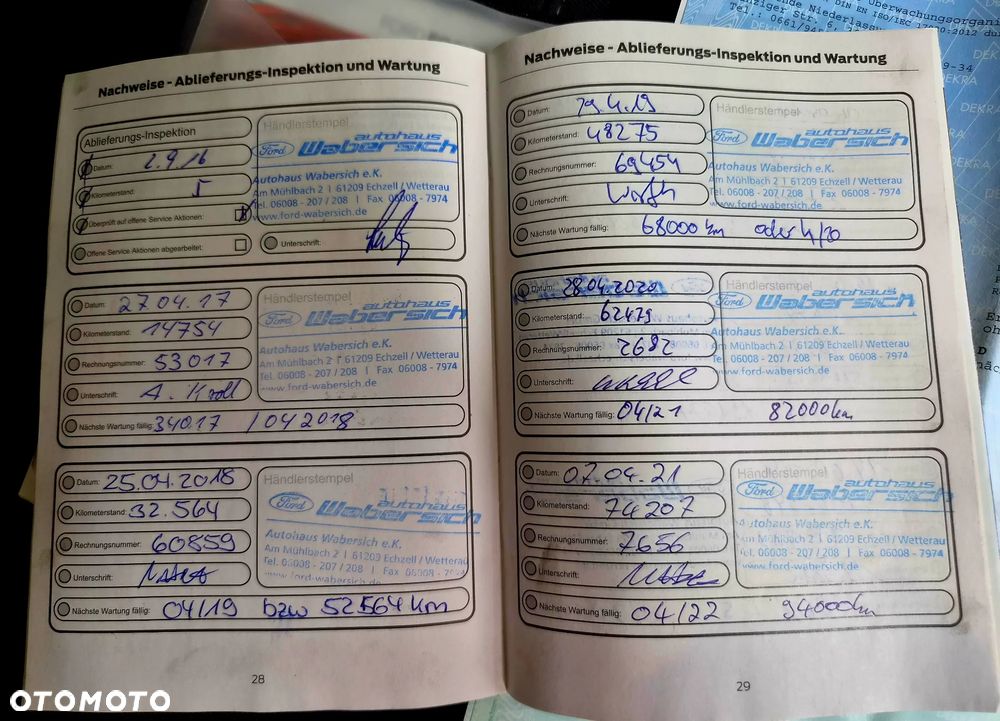 Nachweise - Ablieferungs-Inspektion und Wartung
Ablieferungs-Inspektion
Datum: 2.9.16
Kilometerstand: 5
Überprüft auf offene Service Aktionen:
Offene Service Aktionen abgearbeitet:
Unterschrift:
Händlerstempel
Ford autohaus Wabersich
Autohaus Wabersich e.K.
Am Mühlbach 2 | 61209 Echzell / Wetterau
Tel. 06008 - 207 / 208 | Fax 06008 - 7974
www.ford-wabersich.de
Datum: 27.04.17
Kilometerstand: 14754
Rechnungsnummer: 53017
Unterschrift: A. Kroll
Nächste Wartung fällig: 34017 / 04 2018
Händlerstempel
Ford autohaus Wabersich
Autohaus Wabersich e.K.
Am Mühlbach 2 | 61209 Echzell / Wetterau
Tel. 06008 - 207 / 208 | Fax 06008 - 7974
www.ford-wabersich.de
Datum: 25.04.2018
Kilometerstand: 32.564
Rechnungsnummer: 60859
Unterschrift:
Nächste Wartung fällig: 04/19 bzw 52564 km
Händlerstempel
Ford autohaus Wabersich
Autohaus Wabersich e.K.
Am Mühlbach 2 | 61209 Echzell / Wetterau
Tel. 06008 - 207 / 208 | Fax 06008 - 7974
www.ford-wabersich.de
28
Nachweise - Ablieferungs-Inspektion und Wartung
Datum: 29.4.19
Kilometerstand: 48275
Rechnungsnummer: 69454
Unterschrift:
Nächste Wartung fällig: 68000 km oder 4/20
Händlerstempel
Ford autohaus Wabersich
Autohaus Wabersich e.K.
Am Mühlbach 2 | 61209 Echzell / Wetterau
Tel. 06008 - 207 / 208 | Fax 06008 - 7974
www.ford-wabersich.de
Datum: 28.04.2020
Kilometerstand: 62479
Rechnungsnummer: 2692
Unterschrift:
Nächste Wartung fällig: 04/21 82000km
Händlerstempel
Ford autohaus Wabersich
Autohaus Wabersich e.K.
Am Mühlbach 2 | 61209 Echzell / Wetterau
Tel. 06008 - 207 / 208 | Fax 06008 - 7974
www.ford-wabersich.de
Datum: 07.04.21
Kilometerstand: 74207
Rechnungsnummer: 7656
Unterschrift:
Nächste Wartung fällig: 04/22 94000km
Händlerstempel
Ford autohaus Wabersich
Autohaus Wabersich e.K.
Am Mühlbach 2 | 61209 Echzell / Wetterau
Tel. 06008 - 207 / 208 | Fax 06008 - 7974
www.ford-wabersich.de
29
DEKRA
OTOMOTO